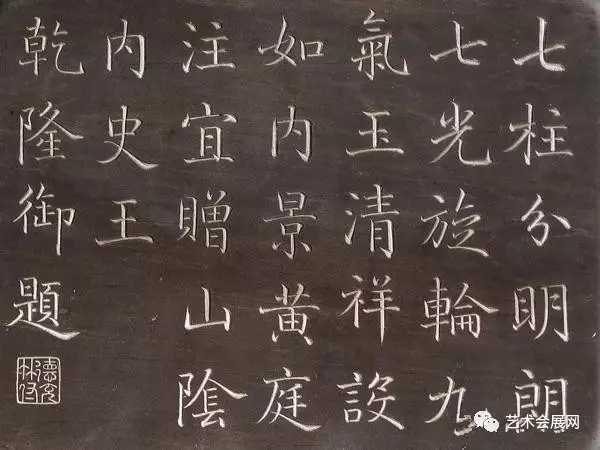 七柱分明朗
七光旋輪九
氣玉清祥設
如内景黃庭
注宜贈山陰
内史王
乾隆御題
艺术会展网